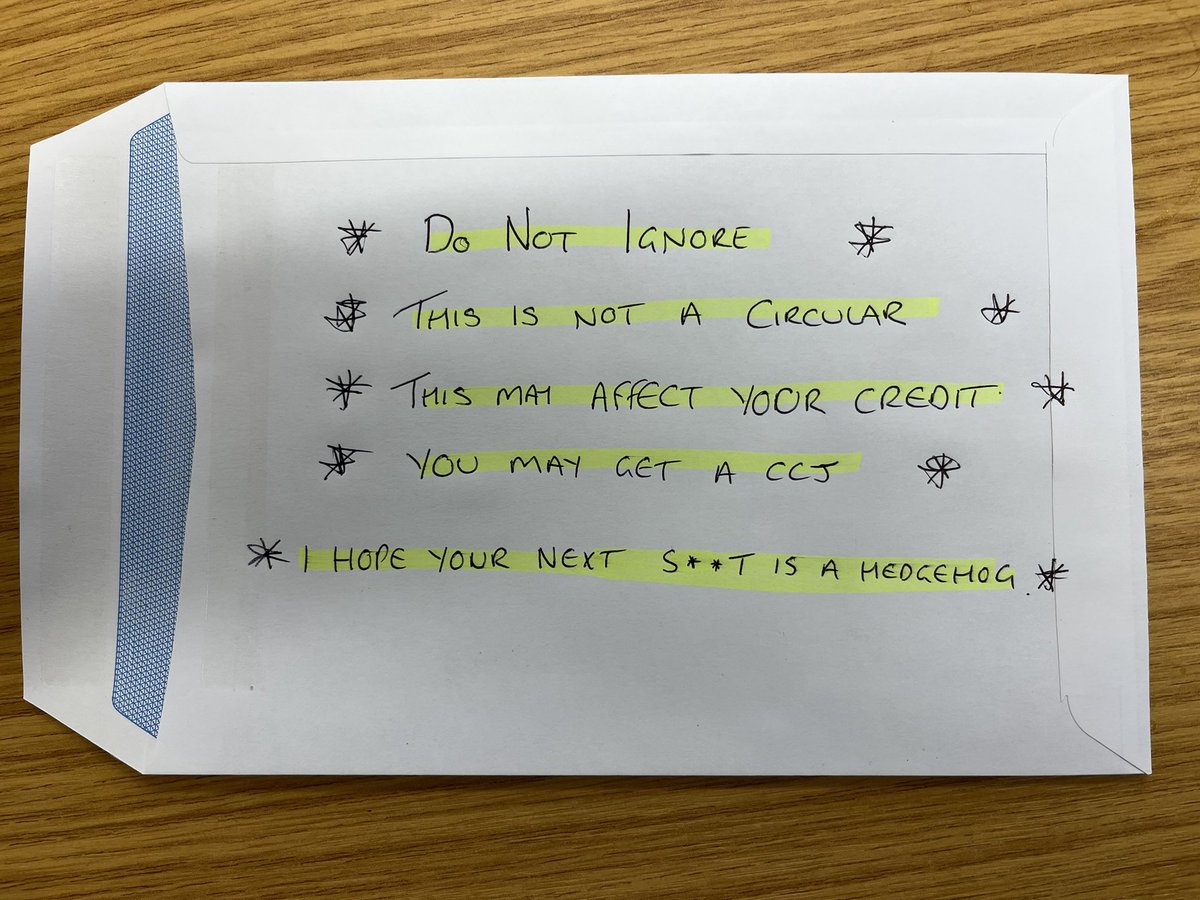 * Do Not Ignore *
* This is not a Circular *
* This may affect your credit. *
* You may get a CCJ *
* I hope your next s**t is a hedgehog. *